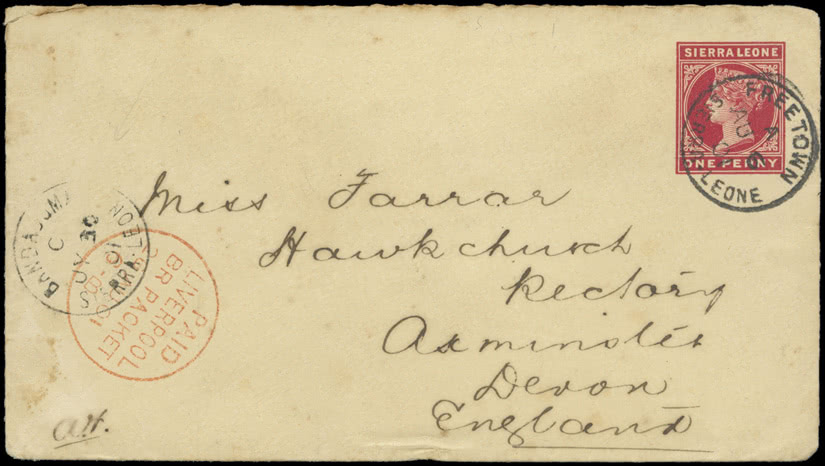 SIERRA LEONE
ONE PENNY
FREETOWN
SIERRA LEONE
A
AU
Miss Farrar
Hawkchurch
Rectory
Axminster
Devon
England
BANDAJUMA
C
PAID
LIVERPOOL
BR PACKET